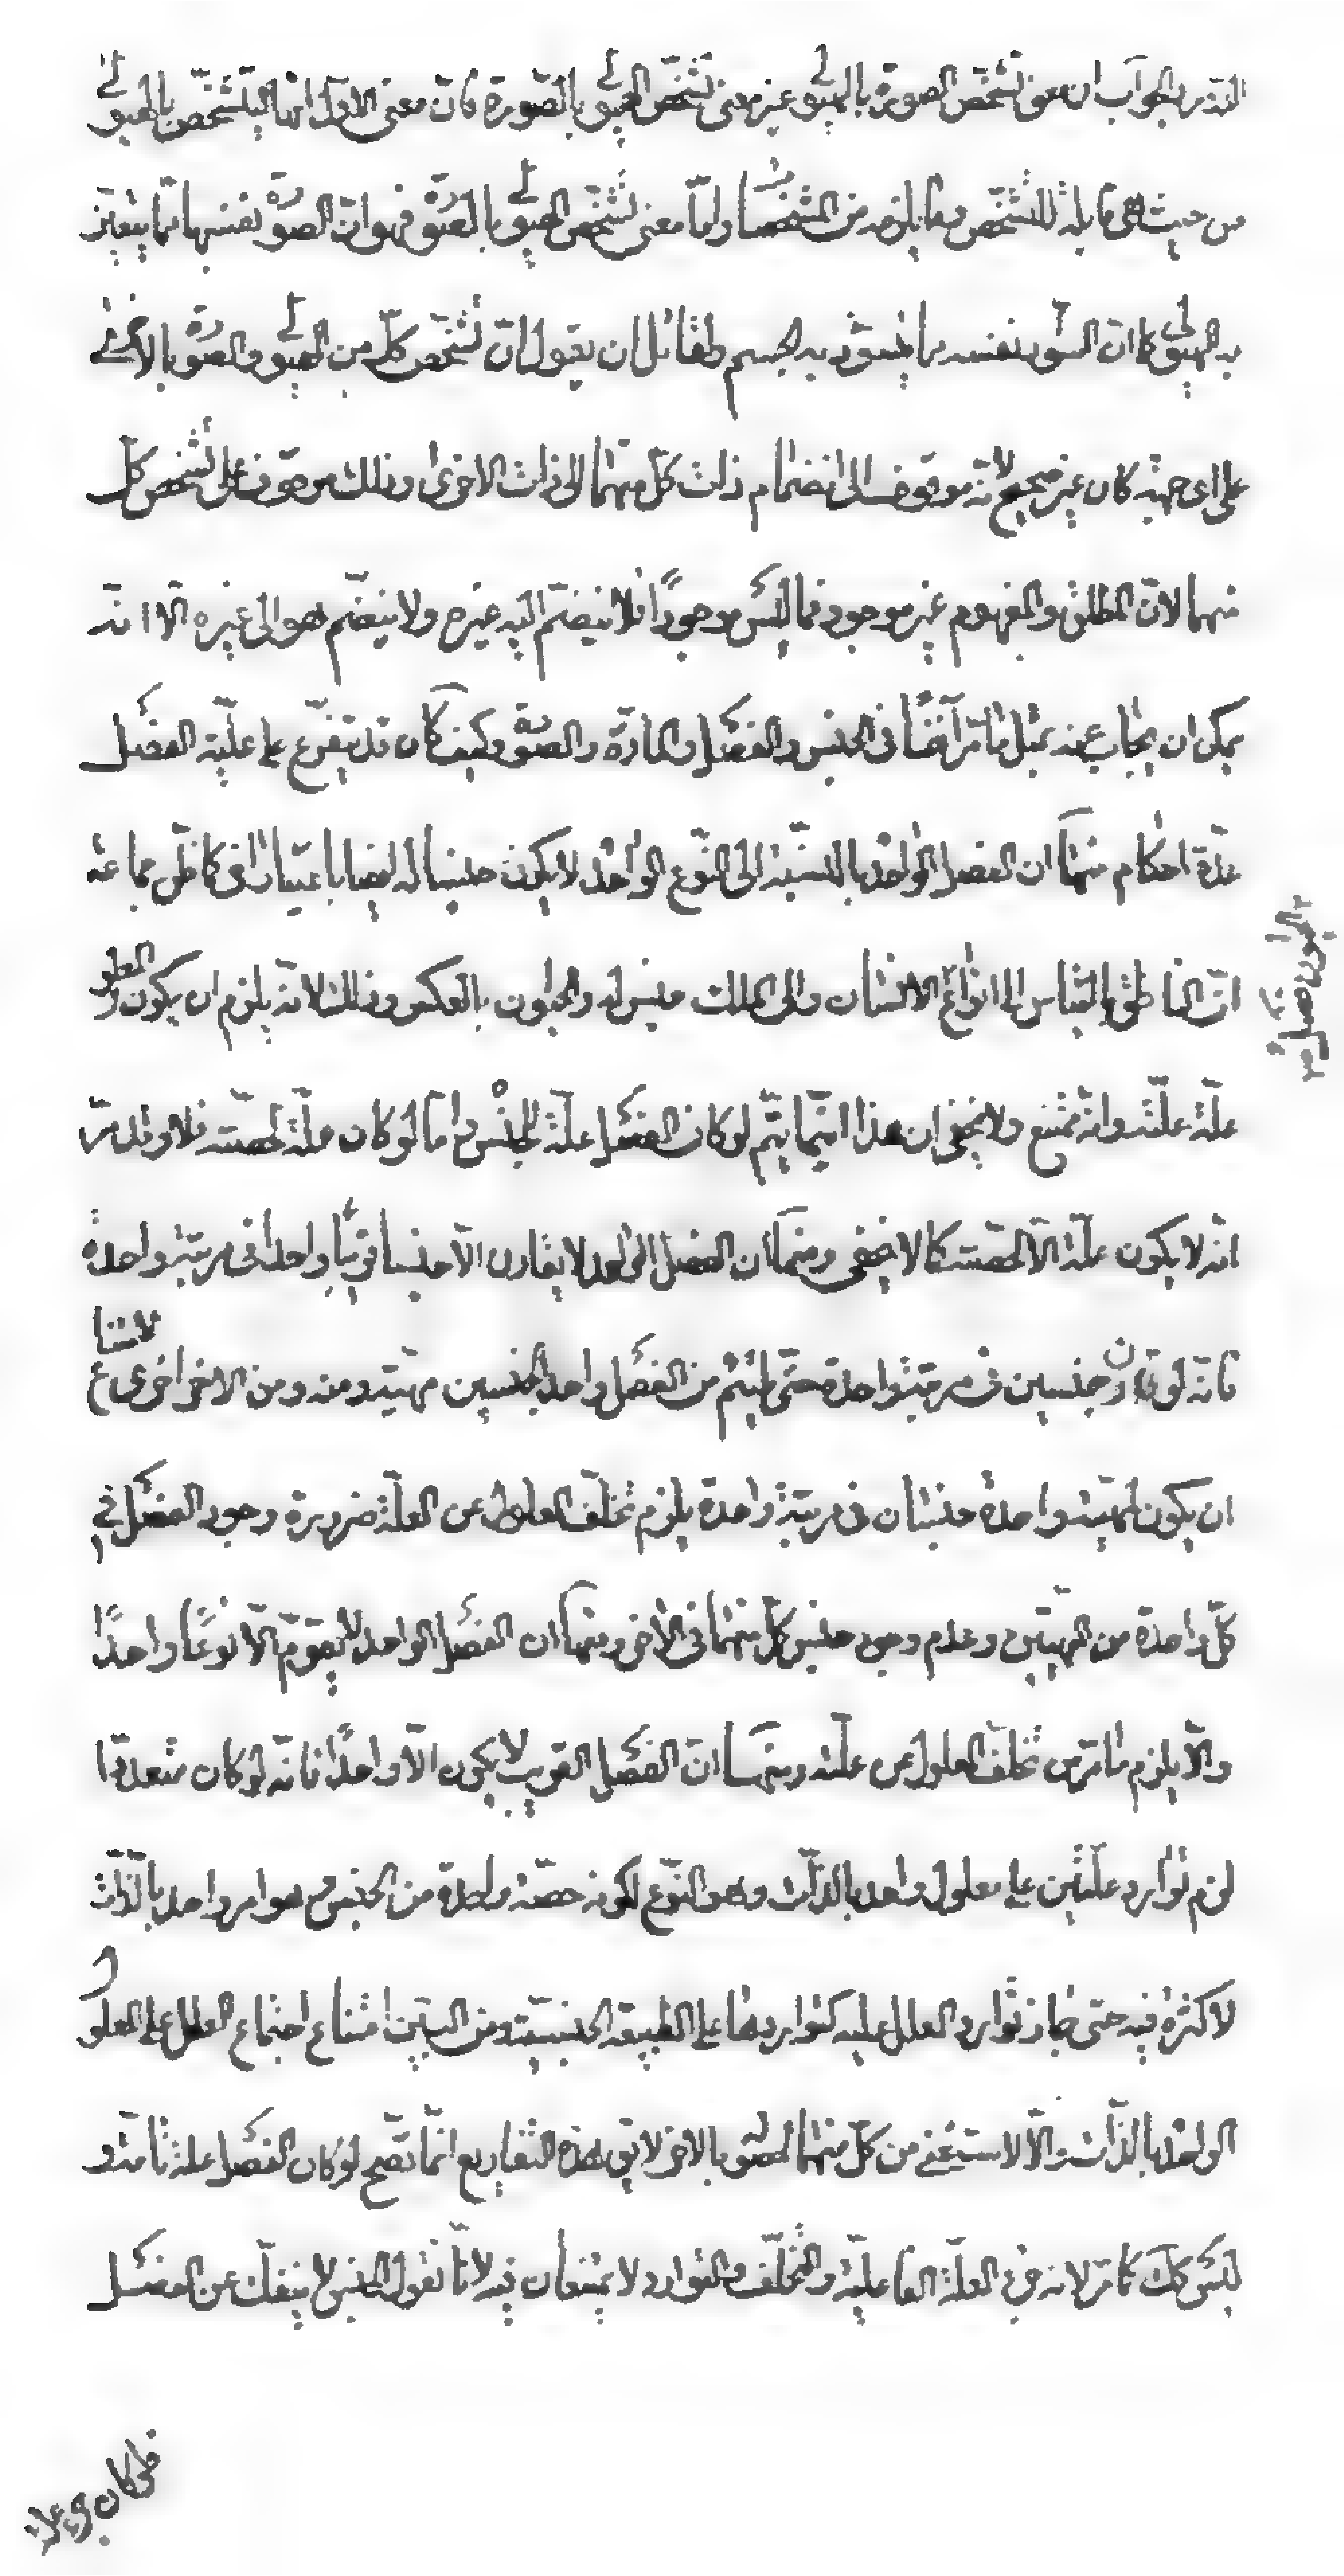 الجواب ان معنى تشخص الصورة بالهيولى غير معنى تشخص الهيولى بالصورة فان معنى الاول انها تتشخص بالهيولى
من حيث هي قابلة للتشخص وما يلزمه من المشخصات واما معنى تشخص الهيولى بالصورة فهو ان الصورة نفسها مما يتميز
به الهيولى كما ان السواد نفسه مما يتسود به الجسم ولقائل ان يقول ان تشخص كل من الهيولى والصورة بالاخرى
على اى جهة كان غير صحيح لانه موقوف الى انضمام ذات كل منهما الى ذات الاخرى وذلك موقوف على تشخص كل
منهما لان المطلق والمفهوم غير موجود فما ليس موجودا فلا ينضم اليه غيره ولا ينضم هو الى غيره الا انه
يمكن ان يجاب عنه بمثل ما مر آنفا فى الجنس والفصل والمادة والصورة وكيف كان قد يتفرع على علية الفصل
عدة احكام منها ان الفصل الواحد بالنسبة الى النوع الواحد لا يكون جنسا له ايضا باعتبار اخر كما ظن جماعة
ان الناطق بالقياس الى انواع الانسان والى الملك جنس له والحيوان بالعكس وذلك لانه يلزم ان يكون المعلول
علة علته وانه ممتنع ولا يخفى ان هذا انما يتم لو كان الفصل علة للجنس واما لو كان علة لحصته فلا وقد مر
انه لا يكون علة الا لحصته كما لا يخفى ومنها ان الفصل الواحد لا يقارن الا جنسا قريبا واحدا فى مرتبة واحدة
فانه لو قارن جنسين فى مرتبة واحدة حتى يلتئم من الفصل واحد الجنسين مهية ومنه ومن الاخر اخرى لامتناع
ان يكون لمهية واحدة جنسان فى مرتبة واحدة يلزم تخلف المعلول عن العلة ضرورة وجود الفصل فى
كل واحدة من المهيتين وعدم وجود جنس كل منهما فى الاخرى ومنها ان الفصل الواحد لا يقوم الا نوعا واحدا
والا يلزم ما مر من تخلف المعلول عن علته ومنها ان الفصل القريب لا يكون الا واحدا فانه لو كان متعددا
لزم توارد علتين على معلول واحد بالذات وهو النوع لكونه حصة واحدة من الجنس وهو امر واحد بالذات
لا كثرة فيه حتى جاز توارد العلل عليه كتواردها على الطبيعة الجنسية ومن البين امتناع اجتماع العلل على المعلول
الواحد بالذات والا لاستغنى من كل منهما لحصوله بالاخر لا يق هذه التفاريع انما تصح لو كان الفصل علة تامة و
ليس كك كما مر لانه فى العلة الفاعلية والتخلف والتوارد لا يمتنعان فيه لانا نقول الجنس لا ينفك عن الفصل